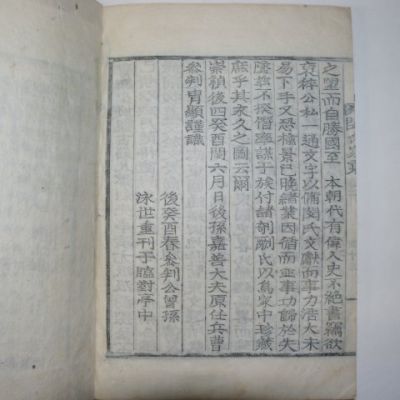 之望而自勝國至 本朝代有偉人史不絶書竊欲
裒稡公私一通文字以備閔氏文獻而事力浩大未
易下手又恐極景已晩緖業因循而亟事功歸於失
墜玆不揆僭率謀于族付諸剞劂氏以爲家中珍藏
庶乎其永久之圖云爾
崇禎後四癸酉閏六月日後孫嘉善大夫原任兵曹
參判胄顯謹識
後癸酉春參判公曾孫
泳世重刊于臨對亭中